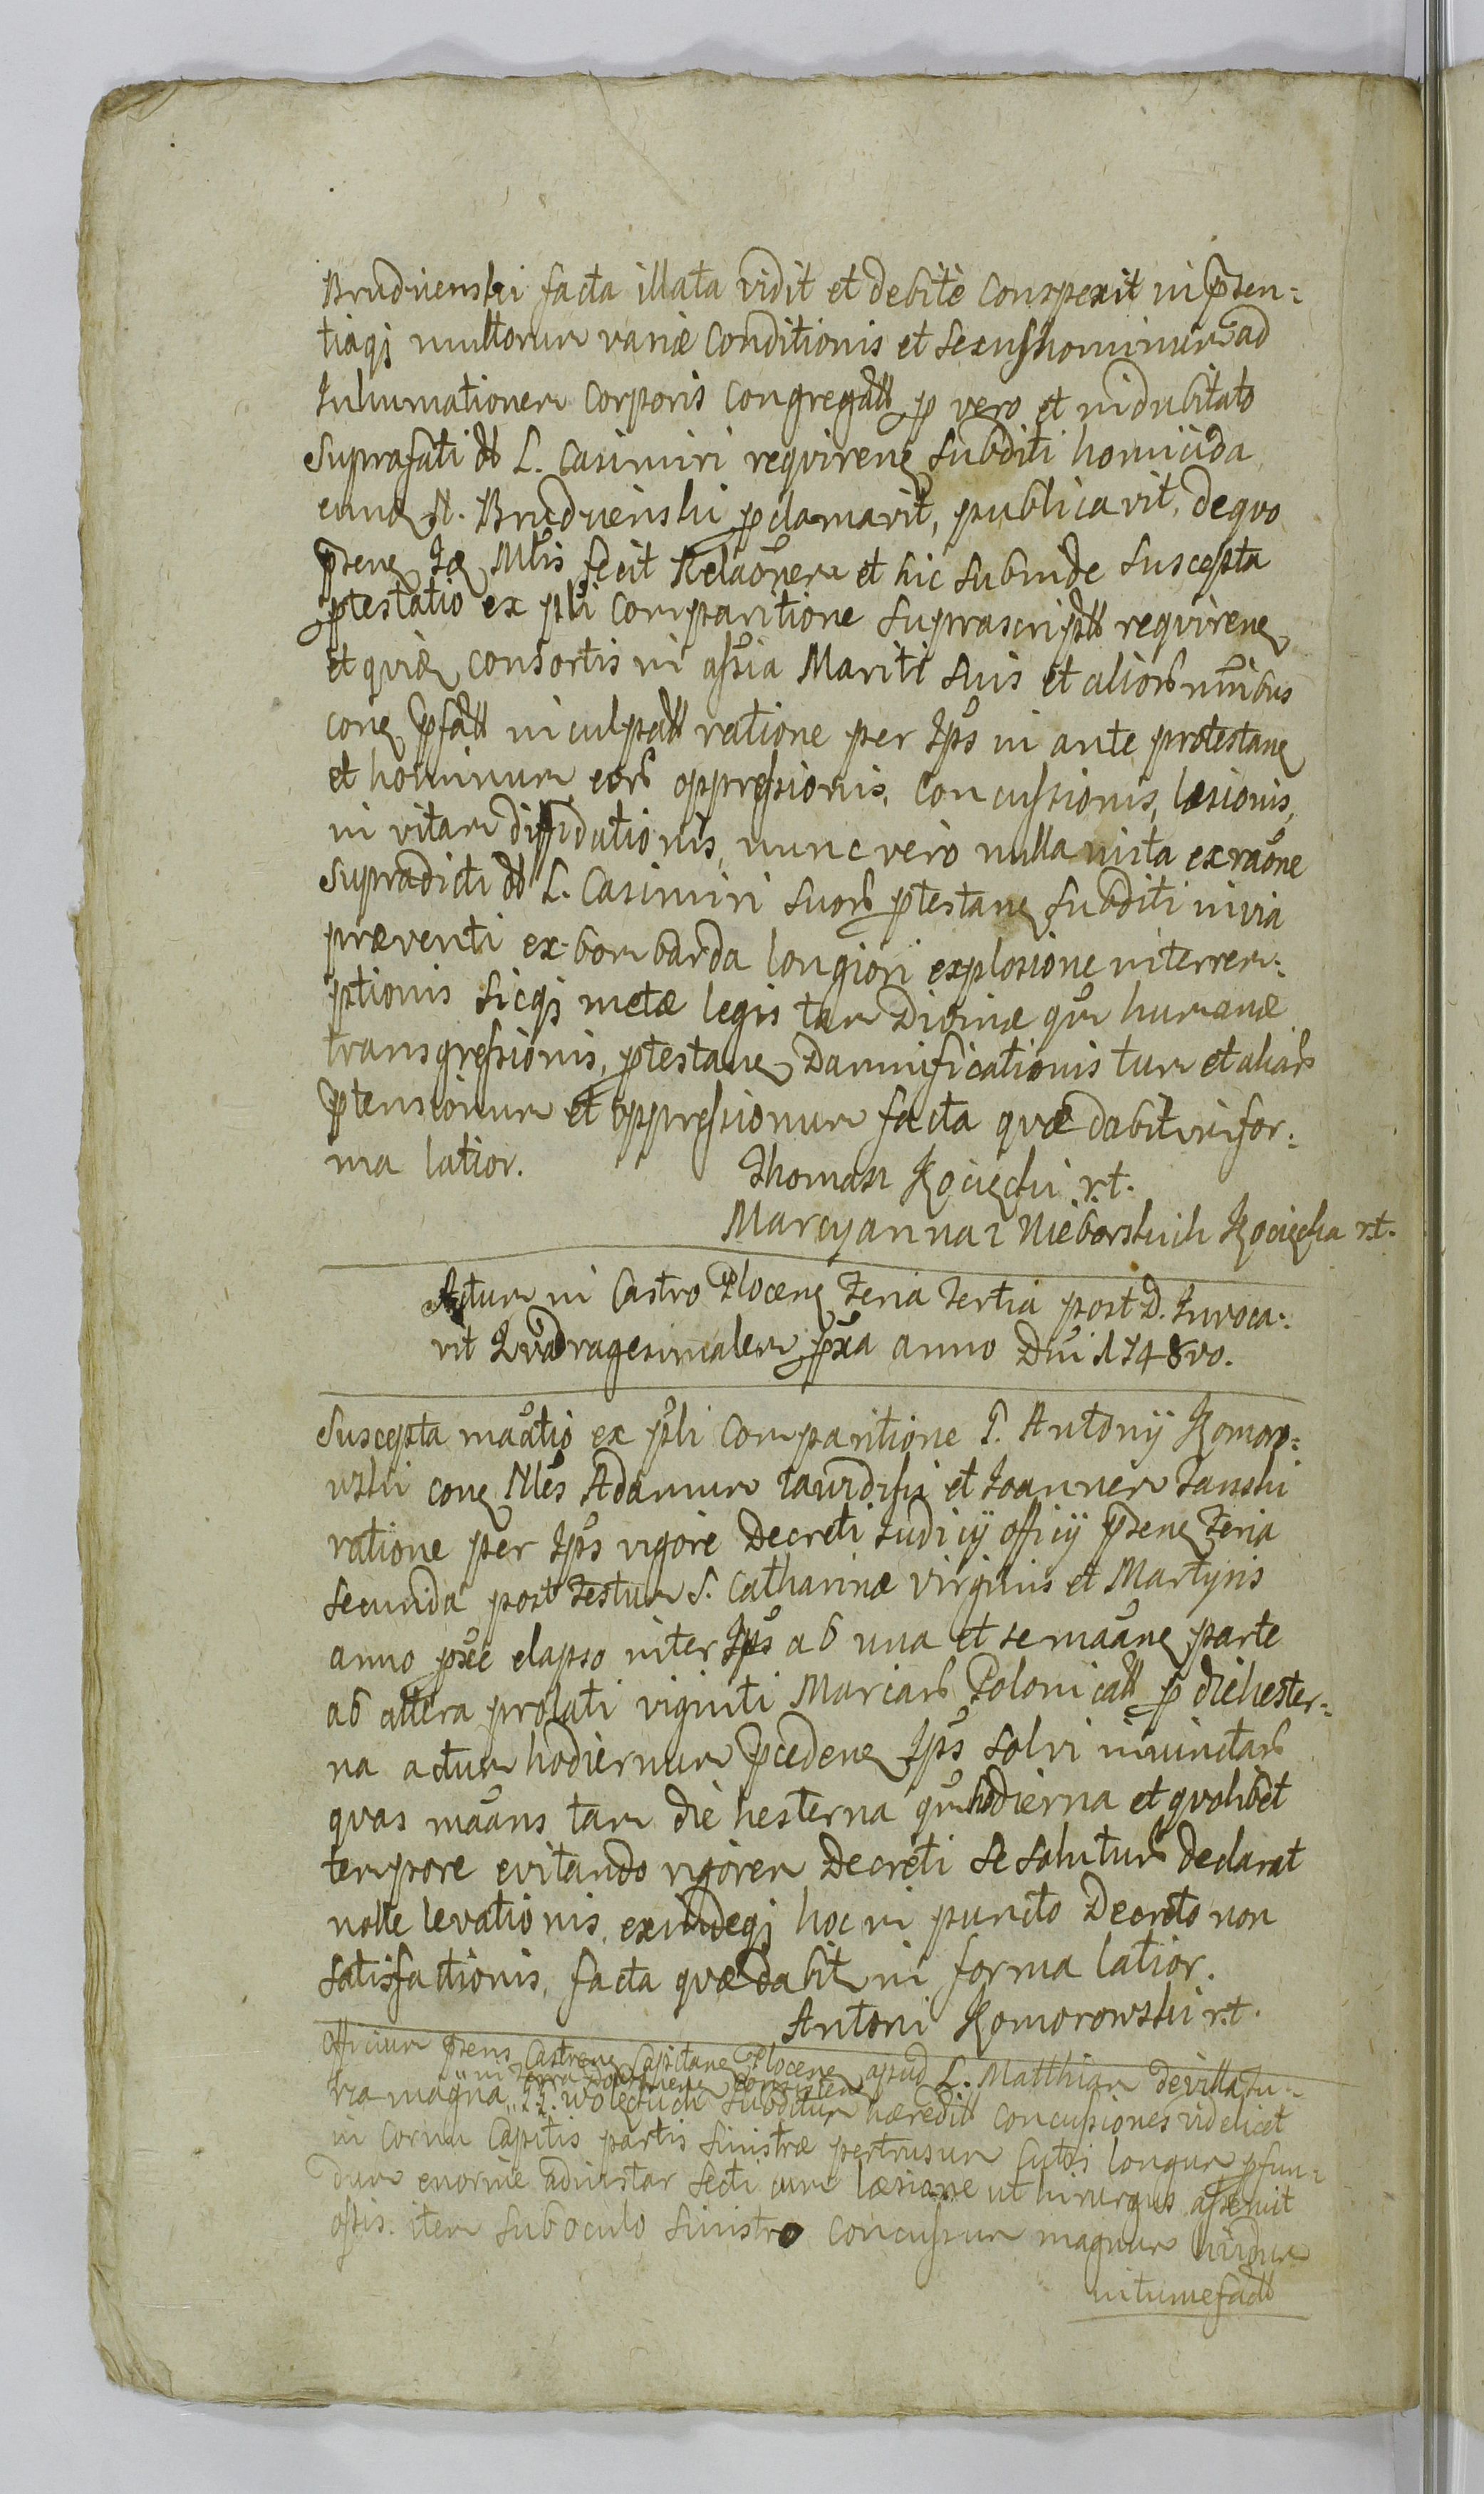 Brudnienski facta illata vidit et debite conspexit in pñsen=
tiaqꝫ multorum variæ conditionis et sexus hominum ad
Inhumationem corporis congregatt p vero et indubitato
suprafati L. Casimiri requirenꝫ subditi homicida
eundꝫ N. Brudnienski pclamavit, publicavit, de quo
pñsenꝫ Idꝫ Mtlis fecit Relaõnem et hic subinde suscepta
ptestatio ex psli comparitione suprascriptt requirenꝫ
et quidꝫ consortis in assia Mariti suis et aliorũ nñibus
conꝫ pfatt inculpatt ratione per Ipõs in ante protestanꝫ
et hominum eorũ oppressionis, concussionis, læsionis,
in vitam diffidationis, nunc vero nulla iusta ex raõne
supradicti L. Casimiri suorũ ptestanꝫ subditi in via
præventi ex bombarda longiori explosione interrem=
ptionis sicqꝫ metæ legis tam Divinæ qũm humanæ
transgressionis, ptestanꝫ Damnificationis tum et aliarũ
ptensionum et oppressionum facta quæ dabitur in for=
ma latior.
Thomasz Kocięcki r.t.
Marcyanna z Nieborskich Kocięcka r.t.
Actum in Castro Plocenꝫ Feria Tertia post D. Invoca=
vit Quadragesimalem pxa anno Dñi 1748vo.
Suscepta mañtio ex psli comparitione G. Antonij Komoro=
wski conꝫ Nles Adamum et Joannem Janski
ratione per Ipõs vigore Decreti Iudicij officij pñsenꝫ Feria
secunda post Festum S. Catharinæ Virginis et Martyris
anno pxie elapso inter Ipõs ab una et se mañanꝫ parte
ab altera prolati viginti Marcarũ Polonicatt p die hester=
na actum hodiernum pcedenꝫ Ipõs solvi iniunctarũ
quas mañans tam die hesterna qũm hodierna et quolibet
tempore evitando rigorem Decreti se soluturũ declarat
nolle levationis, exindeqꝫ hoc in puncto Decreto non
satisfactionis, facta quæ dabitꝫ in forma latior.
Antoni Komorowski r.t.
Officium pñsens Castrenꝫ Capitanꝫ Plocenꝫ apud L. Matthiam de villa Ju=
in Terra consisten
ra magna, subditum hæredit concussiones videlicet
in cornu Capitis partis sinistræ pertrusum Cutis longum pfun=
dum enorme adinstar secti cum læsione ut hirurgus asseruit
ossis. item sub oculo sinistro concussum magnum lividum
intumefactt